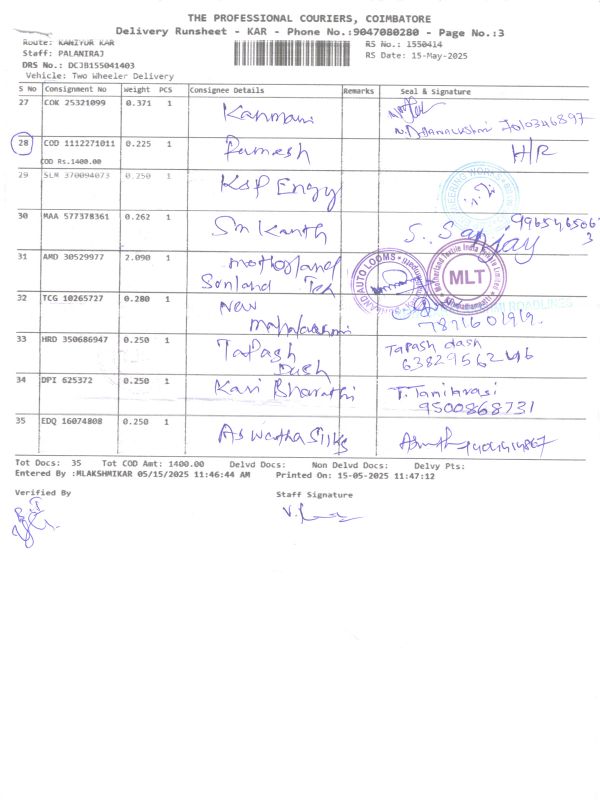 THE PROFESSIONAL COURIERS, COIMBATORE
Delivery Runsheet - KAR - Phone No.:9047080280 - Page No.:3
Route: KANIYUR KAR
RS No.: 1550414
Staff: PALANIRAJ
RS Date: 15-May-2025
DRS No.: DCJB155041403
Vehicle: Two Wheeler Delivery
S No Consignment No Weight PCS Consignee Details Remarks Seal & Signature
27 COK 25321099 0.371 1 Kanmani 7010346897
28 COD 1112271011 0.225 1 Ramesh H/R
COD Rs.1400.00
29 SLM 370094073 0.250 1 KSP Engg
30 MAA 577378361 0.262 1 Sri Kanth S. Sanjay
31 AMD 30529977 2.090 1 motherland
Sonland Tex
AUTO LOOMS
MLT
32 TCG 10265727 0.280 1 New
mahalakshmi 7871601919.
33 HRD 350686947 0.250 1 Tapash
Dash
Tapash dash
6382956246
34 DPI 625372 0.250 1 Kavi Bharathi T. Tamilarasi
9500868731
35 EDQ 16074808 0.250 1 Aswatha Silks
Tot Docs: 35 Tot COD Amt: 1400.00 Delvd Docs: Non Delvd Docs: Delvy Pts:
Entered By :MLAKSHMIKAR 05/15/2025 11:46:44 AM Printed On: 15-05-2025 11:47:12
Verified By Staff Signature